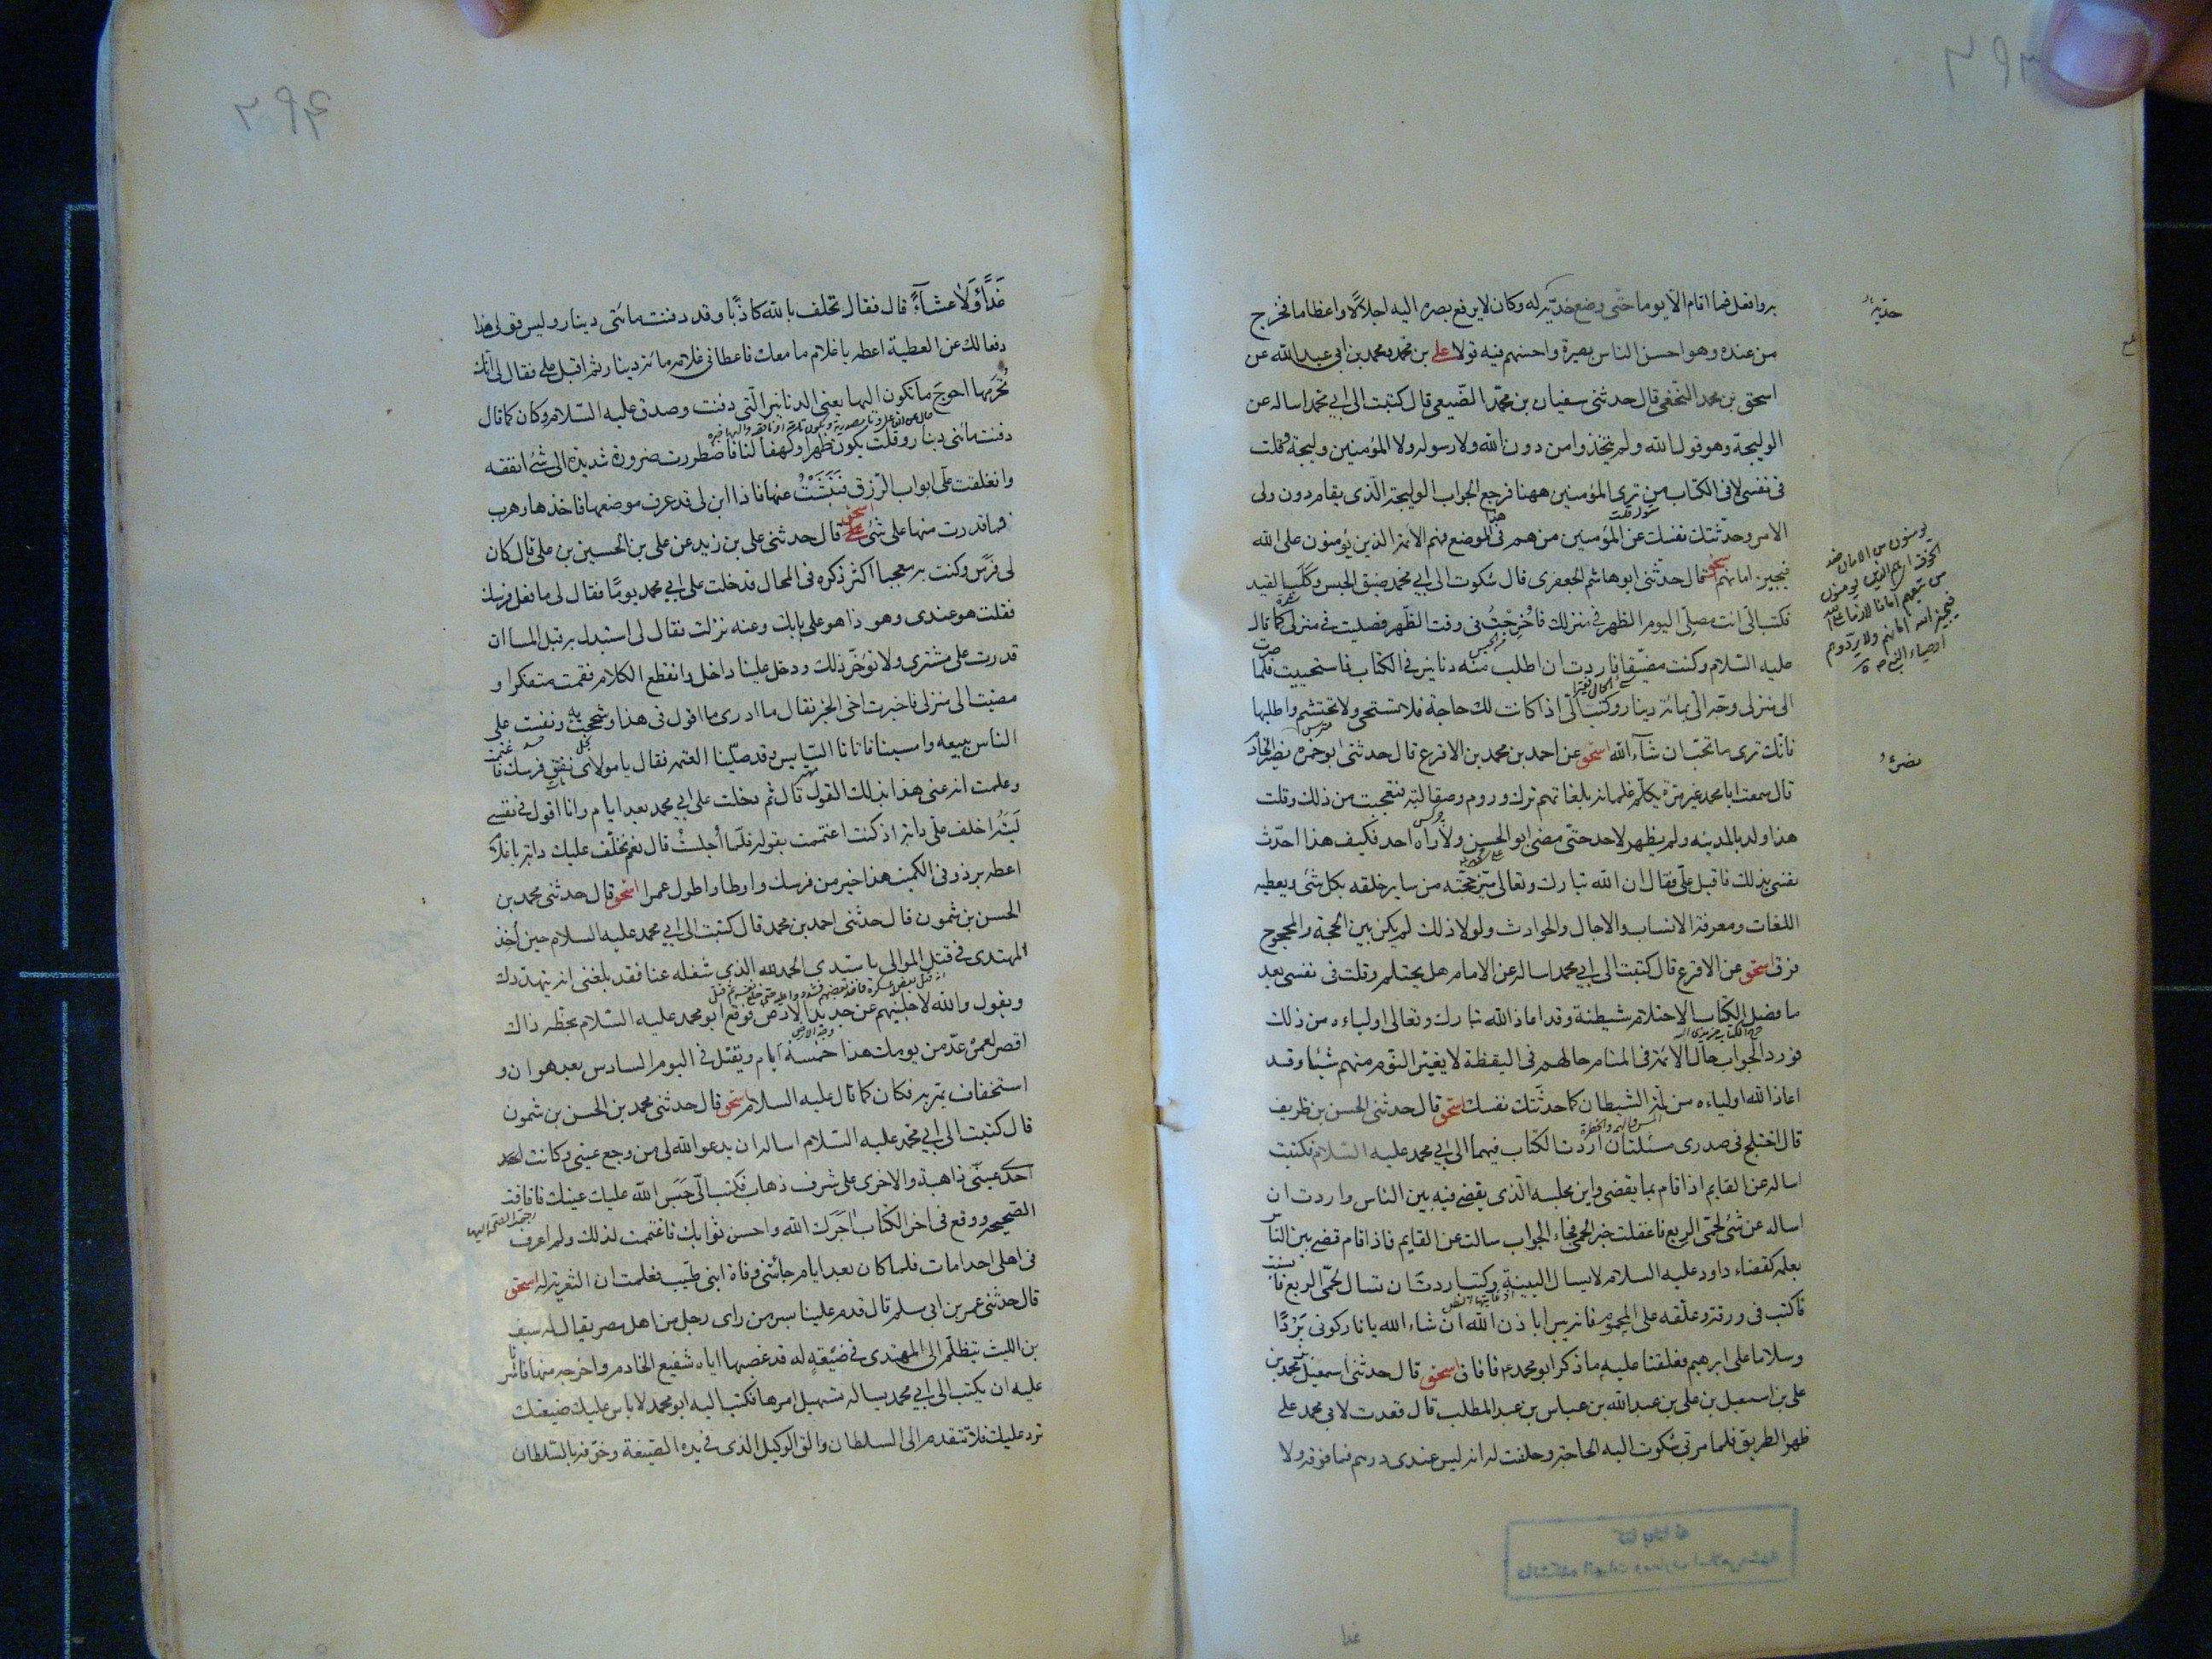 بروافعل فما اقام الا يوما حتى وضع خديه له وكان لا يرفع بصره اليه اجلالا واعظاما فخرج
من عنده وهو احسن الناس بصيرة واحسنهم فيه قولا على بن محمد ومحمد بن ابى عبد الله عن
اسحق بن محمد النخعى قال حدثنى سفيان بن محمد الضبيعى قال كتبت الى ابي محمد اساله عن
الوليجة وهو قول الله ولم يتخذوا من دون الله ولا رسوله ولا المؤمنين وليجة وقلت
فى نفسى لا فى الكتاب من ترى المؤمنين ههنا فرجع الجواب الوليجة الذى يقام دون ولى
الامر وحدثتك نفسك عن المؤمنين من هم فى الموضع فهم الائمة الذين يؤمنون على الله
فيجيز امانهم اسحق قال حدثنى ابو هاشم الجعفرى قال شكوت الى ابي محمد ضيق الحبس وكلب القيد
فكتب الى انت مصلى اليوم الظهر في منزلك فاخرجت فى وقت الظهر فصليت في منزلى كما قال
عليه السلام وكنت مضيقا فاردت ان اطلب منه دنانير فى الكتاب فاستحييت فلما صرت
الى منزلى وجه الى بمائة دينار وكتب الى اذا كانت لك حاجة فلا تستحى ولا تحتشم واطلبها
فانك ترى ما تحب ان شآء الله اسحق عن احمد بن محمد بن الاقرع قال حدثنى ابو حمزه نصير الخادم
قال سمعت ابا محمد غير مرة يكلم غلمانه بلغاتهم ترك وروم وصقالبة فتعجبت من ذلك وقلت
هذا ولد بالمدينه ولم يظهر لاحد حتى مضى ابو الحسن ولا راه احد فكيف هذا احدث
نفسى بذلك فاقبل على فقال ان الله تبارك وتعالى ميز حجته من ساير خلقه بكل شئ ويعطيه
اللغات ومعرفة الانساب والاجال والحوادث ولولا ذلك لم يكن بين الحجة والمحجوج
فرق اسحق عن الاقرع قال كتبت الى ابي محمد اساله عن الامام هل يحتلم وقلت فى نفسى بعد
ما فصل الكتاب الاحتلام شيطنة وقد اعاذ الله تبارك وتعالى اولياءه من ذلك
فورد الجواب حال الائمة فى المنام حالهم فى اليقظة لا يغير النوم منهم شيئا وقد
اعاذ الله اولياءه من لمة الشيطان كما حدثتك نفسك اسحق قال حدثنى الحسن بن ظريف
قال اختلج فى صدرى مسئلتان اردت الكتاب فيهما الى ابي محمد عليه السلام فكتبت
اساله عن القايم اذا قام بما يقضى واين مجلسه الذى يقضى فيه بين الناس واردت ان
اساله عن شئ لحمى الربع فاغفلت خبر الحمى فجاء الجواب سالت عن القايم فاذا قام قضى بين الناس
بعلمه كقضاء داود عليه السلام لا يسال البينة وكنت اردت ان تسال لحمى الربع فانسيت
فاكتب فى ورقة وعلقه على المحموم فانه يبرا باذن الله ان شاء الله يا نار كونى بردا
وسلاما على ابرهيم فعلقنا عليه ما ذكر ابو محمد ع فافاق اسحق قال حدثنى اسمعيل بن محمد بن
على بن اسمعيل بن على بن عبد الله بن عباس بن عبد المطلب قال قعدت لابي محمد على
ظهر الطريق فلما مر بى شكوت اليه الحاجة وحلفت له انه ليس عندى درهم فما فوقه ولا
يؤمنون من الامان ضد
فيجيز الله امانهم ولا يردهم
٢٩٤
غدآء ولا عشآء قال فقال تحلف بالله كاذبا وقد دفنت مائتى دينار وليس قولى هذا
دفعا لك عن العطية اعطه يا غلام ما معك فاعطانى غلامه مائة دينار ثم اقبل على فقال لى انك
تحرمها احوج ما تكون اليها يعنى الدنانير التى دفنت وصدق عليه السلام وكان كما قال
دفنت مائتى دينار وقلت يكون ظهرا وكهفا لنا فاضطررت ضرورة شديدة الى شئ انفقه
وانغلقت على ابواب الرزق فنبشت عنها فاذا ابن لى قد عرف موضعها فاخذها وهرب
فما قدرت منها على شئ اسحق قال حدثنى على بن زيد عن على بن الحسين بن على قال كان
لى فرس وكنت به معجبا اكثر ذكره فى المحال فدخلت على ابي محمد يوما فقال لى ما فعل فرسك
فقلت هو عندى وهو ذا هو على بابك وعنه نزلت فقال لى استبدل به قبل المسا ان
قدرت على مشترى ولا تؤخر ذلك ودخل علينا داخل وانقطع الكلام فقمت متفكرا و
مضيت الى منزلى فاخبرت اخى الخبر فقال ما ادرى ما اقول فى هذا وشححت به ونفست على
الناس ببيعه وامسينا فاتانا السايس وقد صلينا العتمه فقال يا مولاى نفق فرسك فاغتممت
وعلمت انه عنى هذا بذلك القول قال ثم دخلت على ابي محمد بعد ايام وانا اقول في نفسى
ليته اخلف على دابة اذ كنت اغتممت بقوله فلما جلست قال نعم نخلف عليك دابة يا غلام
اعطه برذونى الكميت هذا خير من فرسك واوطا واطول عمرا اسحق قال حدثنى محمد بن
الحسن بن شمون قال حدثنى احمد بن محمد قال كتبت الى ابي محمد عليه السلام حين اخذ
المهتدى فى قتل الموالى يا سيدى الحمد لله الذى شغله عنا فقد بلغنى انه يتهددك
ويقول والله لاجلينهم عن جديد الارض فوقع ابو محمد عليه السلام بخطه ذاك
اقصر لعمره عد من يومك هذا خمسة ايام ويقتل فى اليوم السادس بعد هوان و
استخفاف يمر به فكان كما قال عليه السلام اسحق قال حدثنى محمد بن الحسن بن شمون
قال كتبت الى ابي محمد عليه السلام اساله ان يدعو الله لى من وجع عينى وكانت
احدى عينى ذاهبة والاخرى على شرف ذهاب فكتب الى حبس الله عليك عينك فافاقت
الصحيحة ووقع فى اخر الكتاب اجرك الله واحسن ثوابك فاغتممت لذلك ولم اعرف
فى اهلى احدا مات فلما كان بعد ايام جائتنى وفاة ابنى طيب فعلمت ان التعزية له اسحق
قال حدثنى عمر بن ابى مسلم قال قدم علينا بسر من راى رجل من اهل مصر يقال له سيف
بن الليث يتظلم الى المهتدى فى ضيعة له قد غصبها اياه شفيع الخادم واخرجه منها فاشرنا
عليه ان يكتب الى ابي محمد يساله تسهيل امرها فكتب اليه ابو محمد لا باس عليك ضيعتك
ترد عليك فلا تتقدم الى السلطان والق الوكيل الذى فى يده الضيعة وخوفه بالسلطان